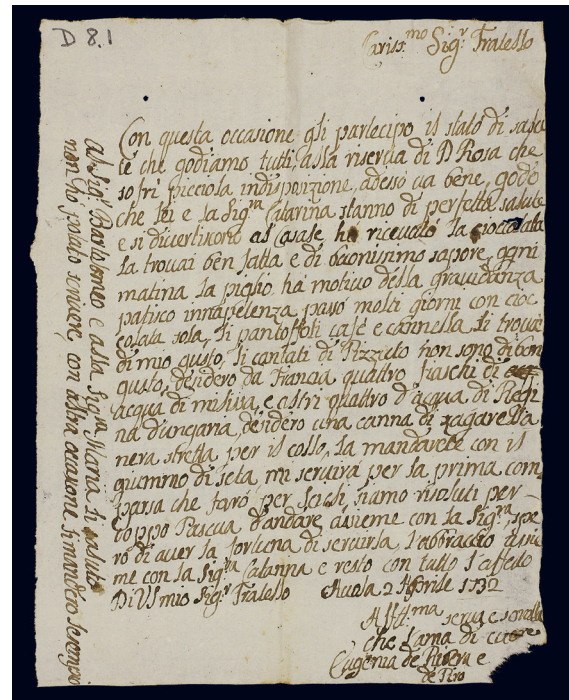 D 8.1
Cariss.mo Sig.r Fratello
Con questa occasione gli partecipo il stato di salu
te che godiamo tutti alla riserva di D Rosa che
soffrì picciola indisposizione, adesso va bene, godo
che lei e la Sig.ra Catarina stanno di perfetta salute
e si divertiscono al Casale ho ricevuto la cioccolata
la trovai ben fatta e di buonissimo sapore, ogni
matina la piglio, ha motivo della gravidanza
patisco innapetenza passo molti giorni con cioc
colata sola, li pantoffoli cafè e cannella li trovai
di mio gusto, li cantati di Pizzuto non sono di bon
gusto, desidero da Francia quattro fiaschi di
acqua di e altri quattro d'acqua di Regi
na d'ungaria, desidero una canna di zagarella
nera stretta per il collo, la mandarete con il
giummo di seta, mi servirà per la prima com
parsa che farò per Scicli, siamo risoluti per
doppo Pascua d'andare assieme con la Sig.ra, spe
ro di aver la fortuna di servirla, l'abbraccio assie
me con la Sig.ra Catanna e resto con tutto l'affetto
Di VS mio Sig.r Fratello Avola 2 Aprile 1792
Aff.ma serva e sorella
che l'ama di cuore
Eugenia de Ribera e
de Piro
Al Sig.r Bartolomeo e alla Sig.ra Maria li saluto
non ho potuto scrivere, con altra occasione li mandero